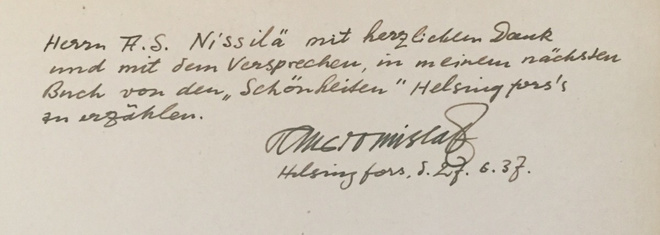 Herrn A.S. Nissilä mit herzlichem Dank
und mit dem Versprechen, in meinem nächsten
Buch von den „Schönheiten“ Helsingfors's
zu erzählen.
Helsingfors, d. 27. 6. 37.